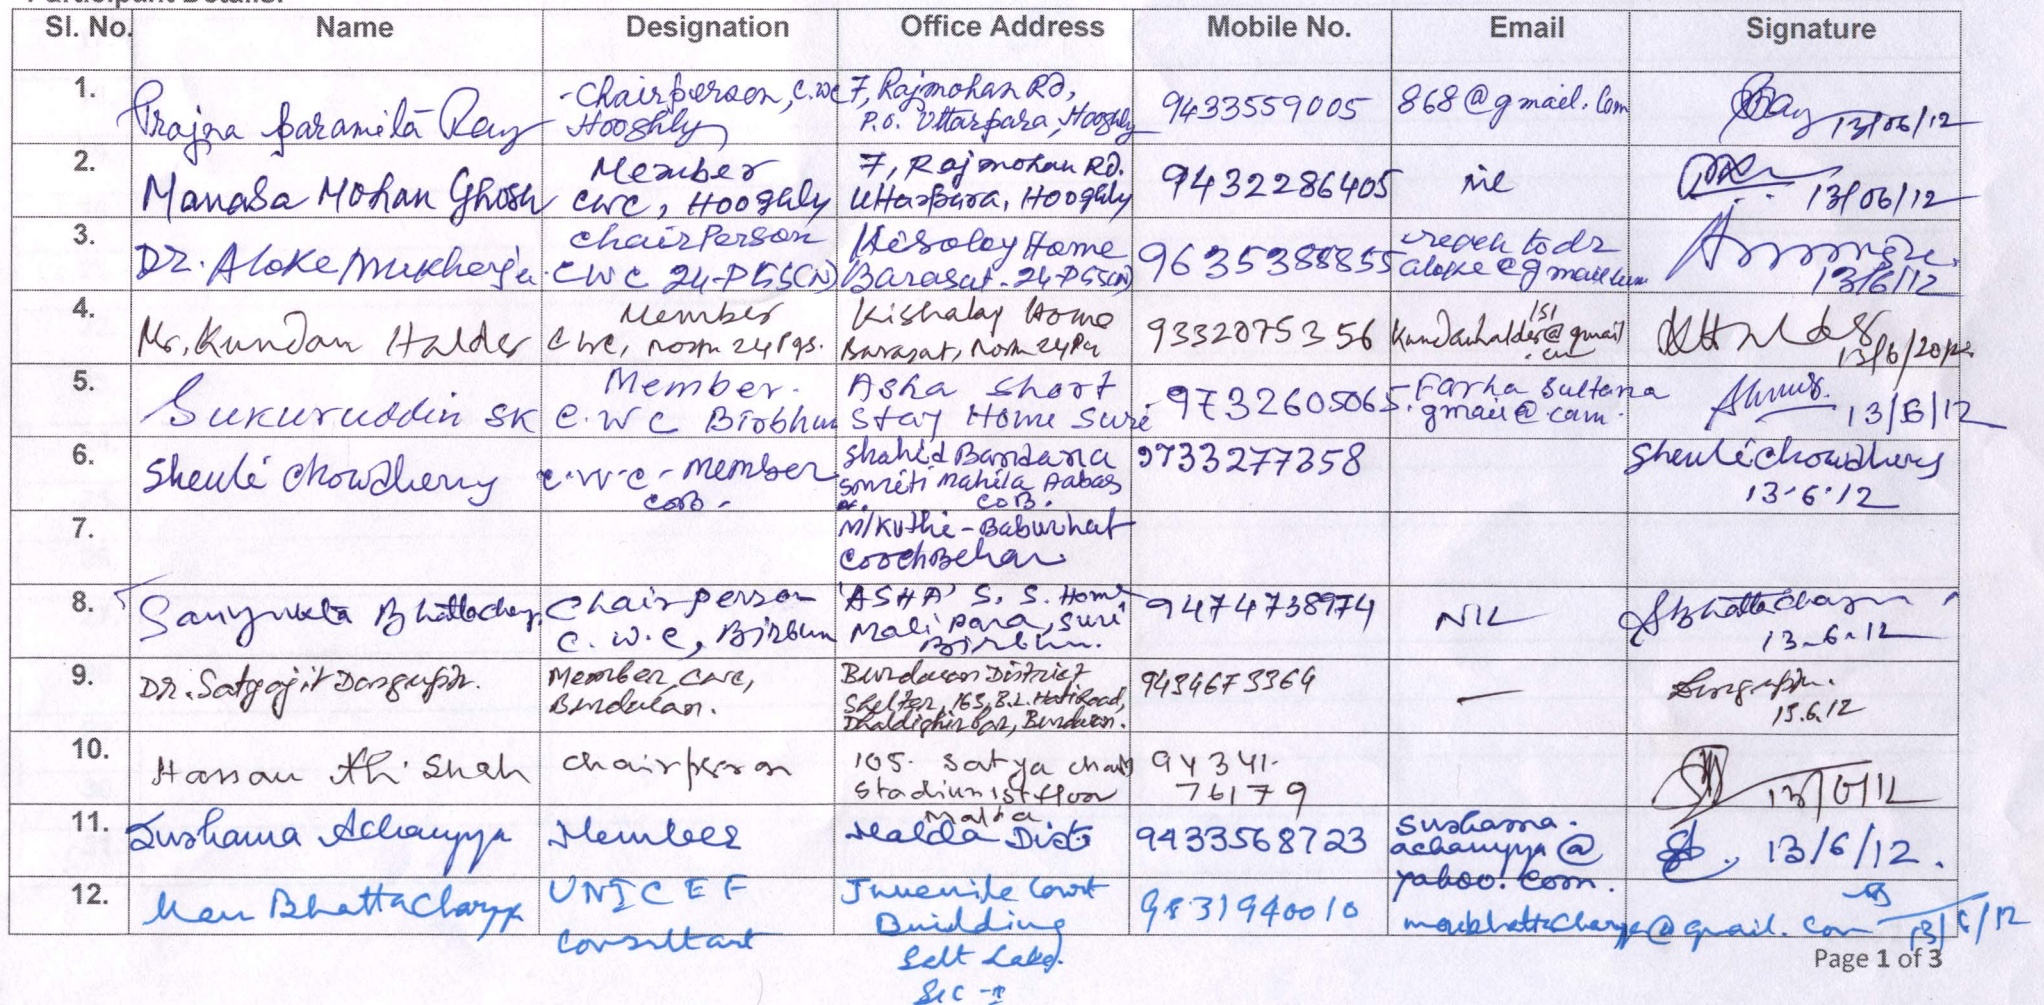 Participant Details:
Sl. No. Name Designation Office Address Mobile No. Email Signature
1. Prajna paramita Ray
Chairperson, C.WC
Hooghly
7, Rajmohan Rd,
P.O. Uttarpara, Hooghly
9433559005
868@gmail.com
Ray 13/06/12
2. Manasa Mohan Ghosh
Member
CWC, Hooghly
7, Rajmohan Rd.
Uttarpara, Hooghly
9432286405
nil
13/06/12
3. Dr. Aloke Mukherjee
Chairperson
CWC 24-PGS(N)
Kisolay Home
Barasat. 24-PGS(N)
9635388855
13/6/12
4. Mr. Kundan Halder
Member
CWC, North 24 Pgs.
Kishalay Home
Barasat, North 24 Pg
9332075356
151
Kundanhalder@gmail
.com
13/6/2012
5. Sukuruddin SK
Member.
C.W C Birbhum
Asha Short
Stay Home Suri
9732605065
Farha Sultana
gmail@cam.
13/6/12
6. Sheuli Chowdhury
C.W.C - Member
COB.
Shahid Bandana
Smriti Mahila Aabas
COB.
9733277358
Sheuli Chowdhury
13.6.12
7. M/Kuthi-Baburhat
CoochBehar
8. Sanyukta Bhattachary
Chairperson
C.W.C, Birbhum
'ASHA' S. S. Home
Malipara, Suri
Birbhum.
9474738974
NIL
SBhattacharya
13-6-12
9. Dr. Satyajit Dasgupta.
Member, CWC,
Burdwan.
Burdwan District
Shelter, 163, B.L. Hati Road,
Dhaldighir par, Burdwan.
9434673364
—
Dasgupta.
13.6.12
10. Hassan Ali Shah
Chairperson
105. Satya
Stadium 1st floor
Malda
94341.
76179
11. Sushama Acharyya
Member
Malda Dist
9433568723
sushama.
acharyya@
yahoo.com.
13/6/12.
12. Bhattacharyya
UNICEF
Consultant
Juvenile Court
Building
Salt Lake.
Sec-I
9831940010
13/6/12
Page 1 of 3